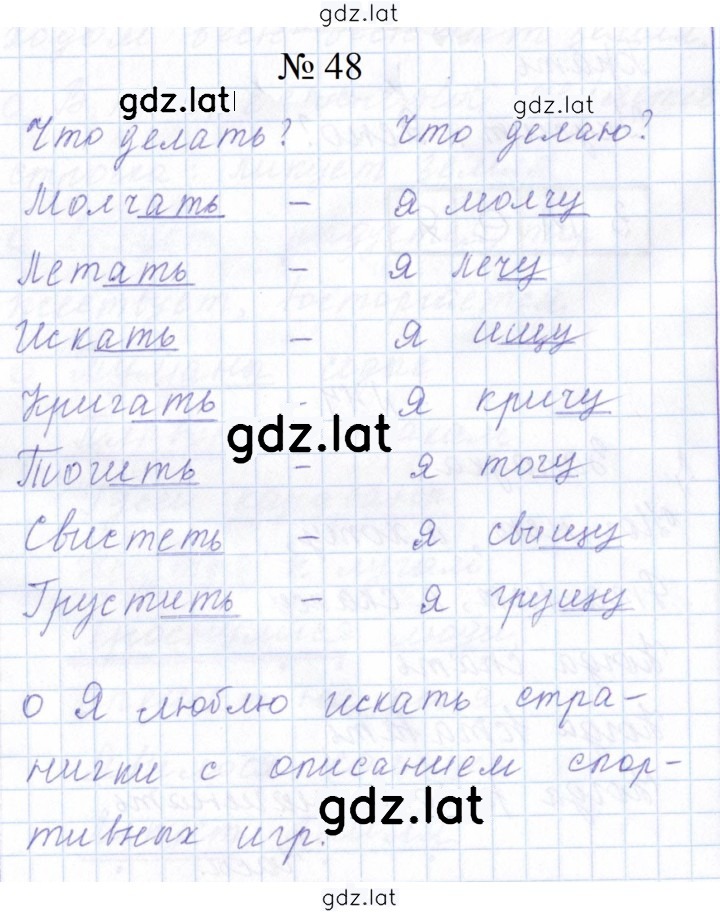 gdz.lat
№ 48
gdz.lat gdz.lat
Что делать? Что делаю?
Молчать – я молчу
Летать – я лечу
Искать – я ищу
Кричать - я кричу
gdz.lat
Точить – я точу
Свистеть – я свищу
Грустить – я грущу
о Я люблю искать стра-
нички с описанием спор-
gdz.lat
тивных игр.
gdz.lat